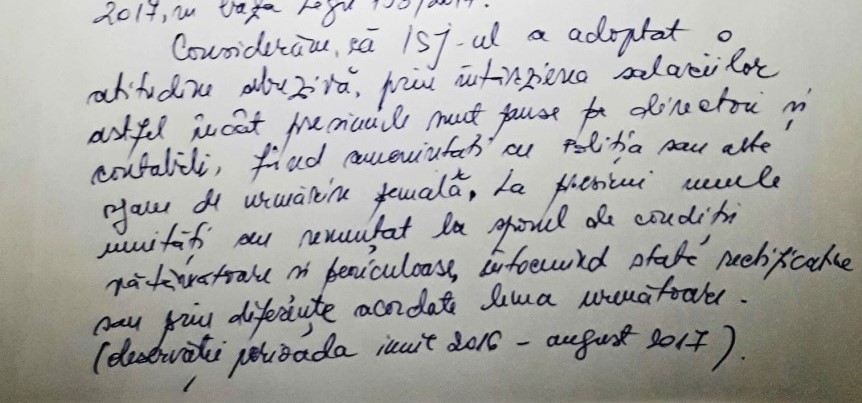 2017, în baza Legii 153/2017.
Considerăm, că ISJ-ul a adoptat o
atitudine abuzivă, prin întârzierea salariilor
astfel încât presiunile sunt puse pe directori și
contabili, fiind amenințați cu Poliția sau alte
organe de urmărire penală. La presiuni unele
unități au renunțat la sporul de condiții
vătămătoare și periculoase, întocmind state rectificative
sau prin diferințe acordate luna următoare.
(observații perioada iunie 2016 - august 2017).